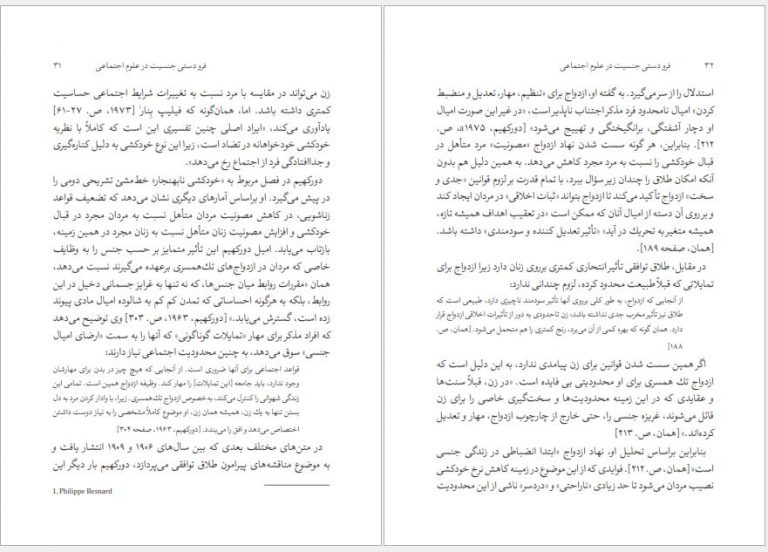 فرودستی جنسیت در علوم اجتماعی ۳۱
زن می‌تواند در مقایسه با مرد نسبت به تغییرات شرایط اجتماعی حساسیت
کمتری داشته باشد. اما، همان‌گونه که فیلیپ بِنار۱ [۱۹۷۳، ص. ۲۷-۶۱]
یادآوری می‌کند، «ایراد اصلی چنین تفسیری این است که کاملاً با نظریه
خودکشی خودخواهانه در تضاد است، زیرا این نوع خودکشی به دلیل کناره‌گیری
و جداافتادگی فرد از اجتماع رخ می‌دهد».
دورکهیم در فصل مربوط به «خودکشی نابهنجار» خط‌مشیّ تشریحی دومی را
در پیش می‌گیرد. او براساس آمارهای دیگری نشان می‌دهد که تضعیف قواعد
زناشویی، در کاهش مصونیت مردان متأهل نسبت به مردان مجرد در قبال
خودکشی و افزایش مصونیت زنان متأهل نسبت به زنان مجرد در همین زمینه،
بازتاب می‌یابد. امیل دورکهیم این تأثیر متمایز بر حسب جنس را به وظایف
خاصی که مردان در ازدواج‌های تك‌همسری برعهده می‌گیرند نسبت می‌دهد،
همان «مقررات روابط میان جنس‌ها، که نه تنها به غرایز جسمانی دخیل در این
روابط، بلکه به هرگونه احساساتی که تمدن کم کم به شالوده امیال مادی پیوند
زده است، گسترش می‌یابد.» [دورکهیم، ۱۹۶۳، ص. ۳۰۳] وی توضیح می‌دهد
که افراد مذکر برای مهار «تمایلات گوناگونی» که آنها را به سمت «ارضای امیال
جنسی» سوق می‌دهد، به چنین محدودیت اجتماعی نیاز دارند:
قواعد اجتماعی برای آنها ضروری است. از آنجایی که هیچ چیز در بدن برای مهارشان
وجود ندارد، باید جامعه [این تمایلات] را مهار کند. وظیفه ازدواج همین است. تمامی این
زندگی شهوانی را کنترل می‌کند، به‌خصوص ازدواج تك‌همسری، زیرا، با وادار کردن مرد به دل
بستن تنها به یك زن، همیشه همان زن، او موضوع کاملاً مشخصی را به نیاز دوست داشتن
اختصاص می‌دهد و افق را می‌بندد. [دورکهیم، ۱۹۶۳، صفحه ۳۰۴]
در متن‌های مختلف بعدی که بین سال‌های ۱۹۰۶ و ۱۹۰۹ انتشار یافت و
به موضوع مناقشه‌های پیرامون طلاق توافقی می‌پردازد، دورکهیم بار دیگر این
1. Philippe Besnard
۳۲ فرودستی جنسیت در علوم اجتماعی
استدلال را از سر می‌گیرد. به گفته او، ازدواج برای «تنظیم، مهار، تعدیل و منضبط
کردن» امیال نامحدود فرد مذکر اجتناب ناپذیر است، «در غیر این صورت امیال
او دچار آشفتگی، برانگیختگی و تهییج می‌شود» [دورکهیم، ۱۹۷۵a، ص.
۲۱۲]. بنابراین، هر گونه سست شدن نهاد ازدواج «مصونیت» مرد متأهل در
قبال خودکشی را نسبت به مرد مجرد کاهش می‌دهد. به همین دلیل هم بدون
آنکه امکان طلاق را چندان زیر سؤال ببرد، با تمام قدرت بر لزوم قوانین «جدی و
سخت» ازدواج تأکید می‌کند تا ازدواج بتواند «ثبات اخلاقی» در مردان ایجاد کند
و بر روی آن دسته از امیال آنان که ممکن است «در تعقیب اهداف همیشه تازه،
همیشه متغیر به تحریك در آید» «تأثیر تعدیل کننده و سودمندی» داشته باشد.
[همان، صفحه ۱۸۹].
در مقابل، طلاق توافقی تأثیر انتحاری کمتری برروی زنان دارد زیرا ازدواج برای
تمایلاتی که قبلاً طبیعت محدود کرده، لزوم چندانی ندارد:
از آنجایی که ازدواج، به طور کلی برروی آنها تأثیر سودمند ناچیزی دارد، طبیعی است که
طلاق نیز تأثیر مخرب جدی نداشته باشد؛ زن تاحدودی به دور از تأثیرات اخلاقی ازدواج قرار
دارد. همان گونه که بهره کمی از آن می‌برد، رنج کمتری را هم متحمل می‌شود. [همان، ص.
۱۸۸]
اگر همین سست شدن قوانین برای زن پیامدی ندارد، به این دلیل است که
ازدواج تك همسری برای او محدودیتی بی فایده است، «در زن، قبلاً سنت‌ها
و عقایدی که در این زمینه محدودیت‌ها و سخت‌گیری خاصی را برای زن
قائل می‌شوند، غریزه جنسی را، حتی خارج از چارچوب ازدواج، مهار و تعدیل
کرده‌اند.» [همان، ص. ۲۱۳]
بنابراین براساس تحلیل او، نهاد ازدواج «ابتدا انضباطی در زندگی جنسی
است» [همان، ص. ۲۱۲]. فوایدی که از این موضوع در زمینه کاهش نرخ خودکشی
نصیب مردان می‌شود تا حد زیادی «ناراحتی» و «دردسر» ناشی از این محدودیت